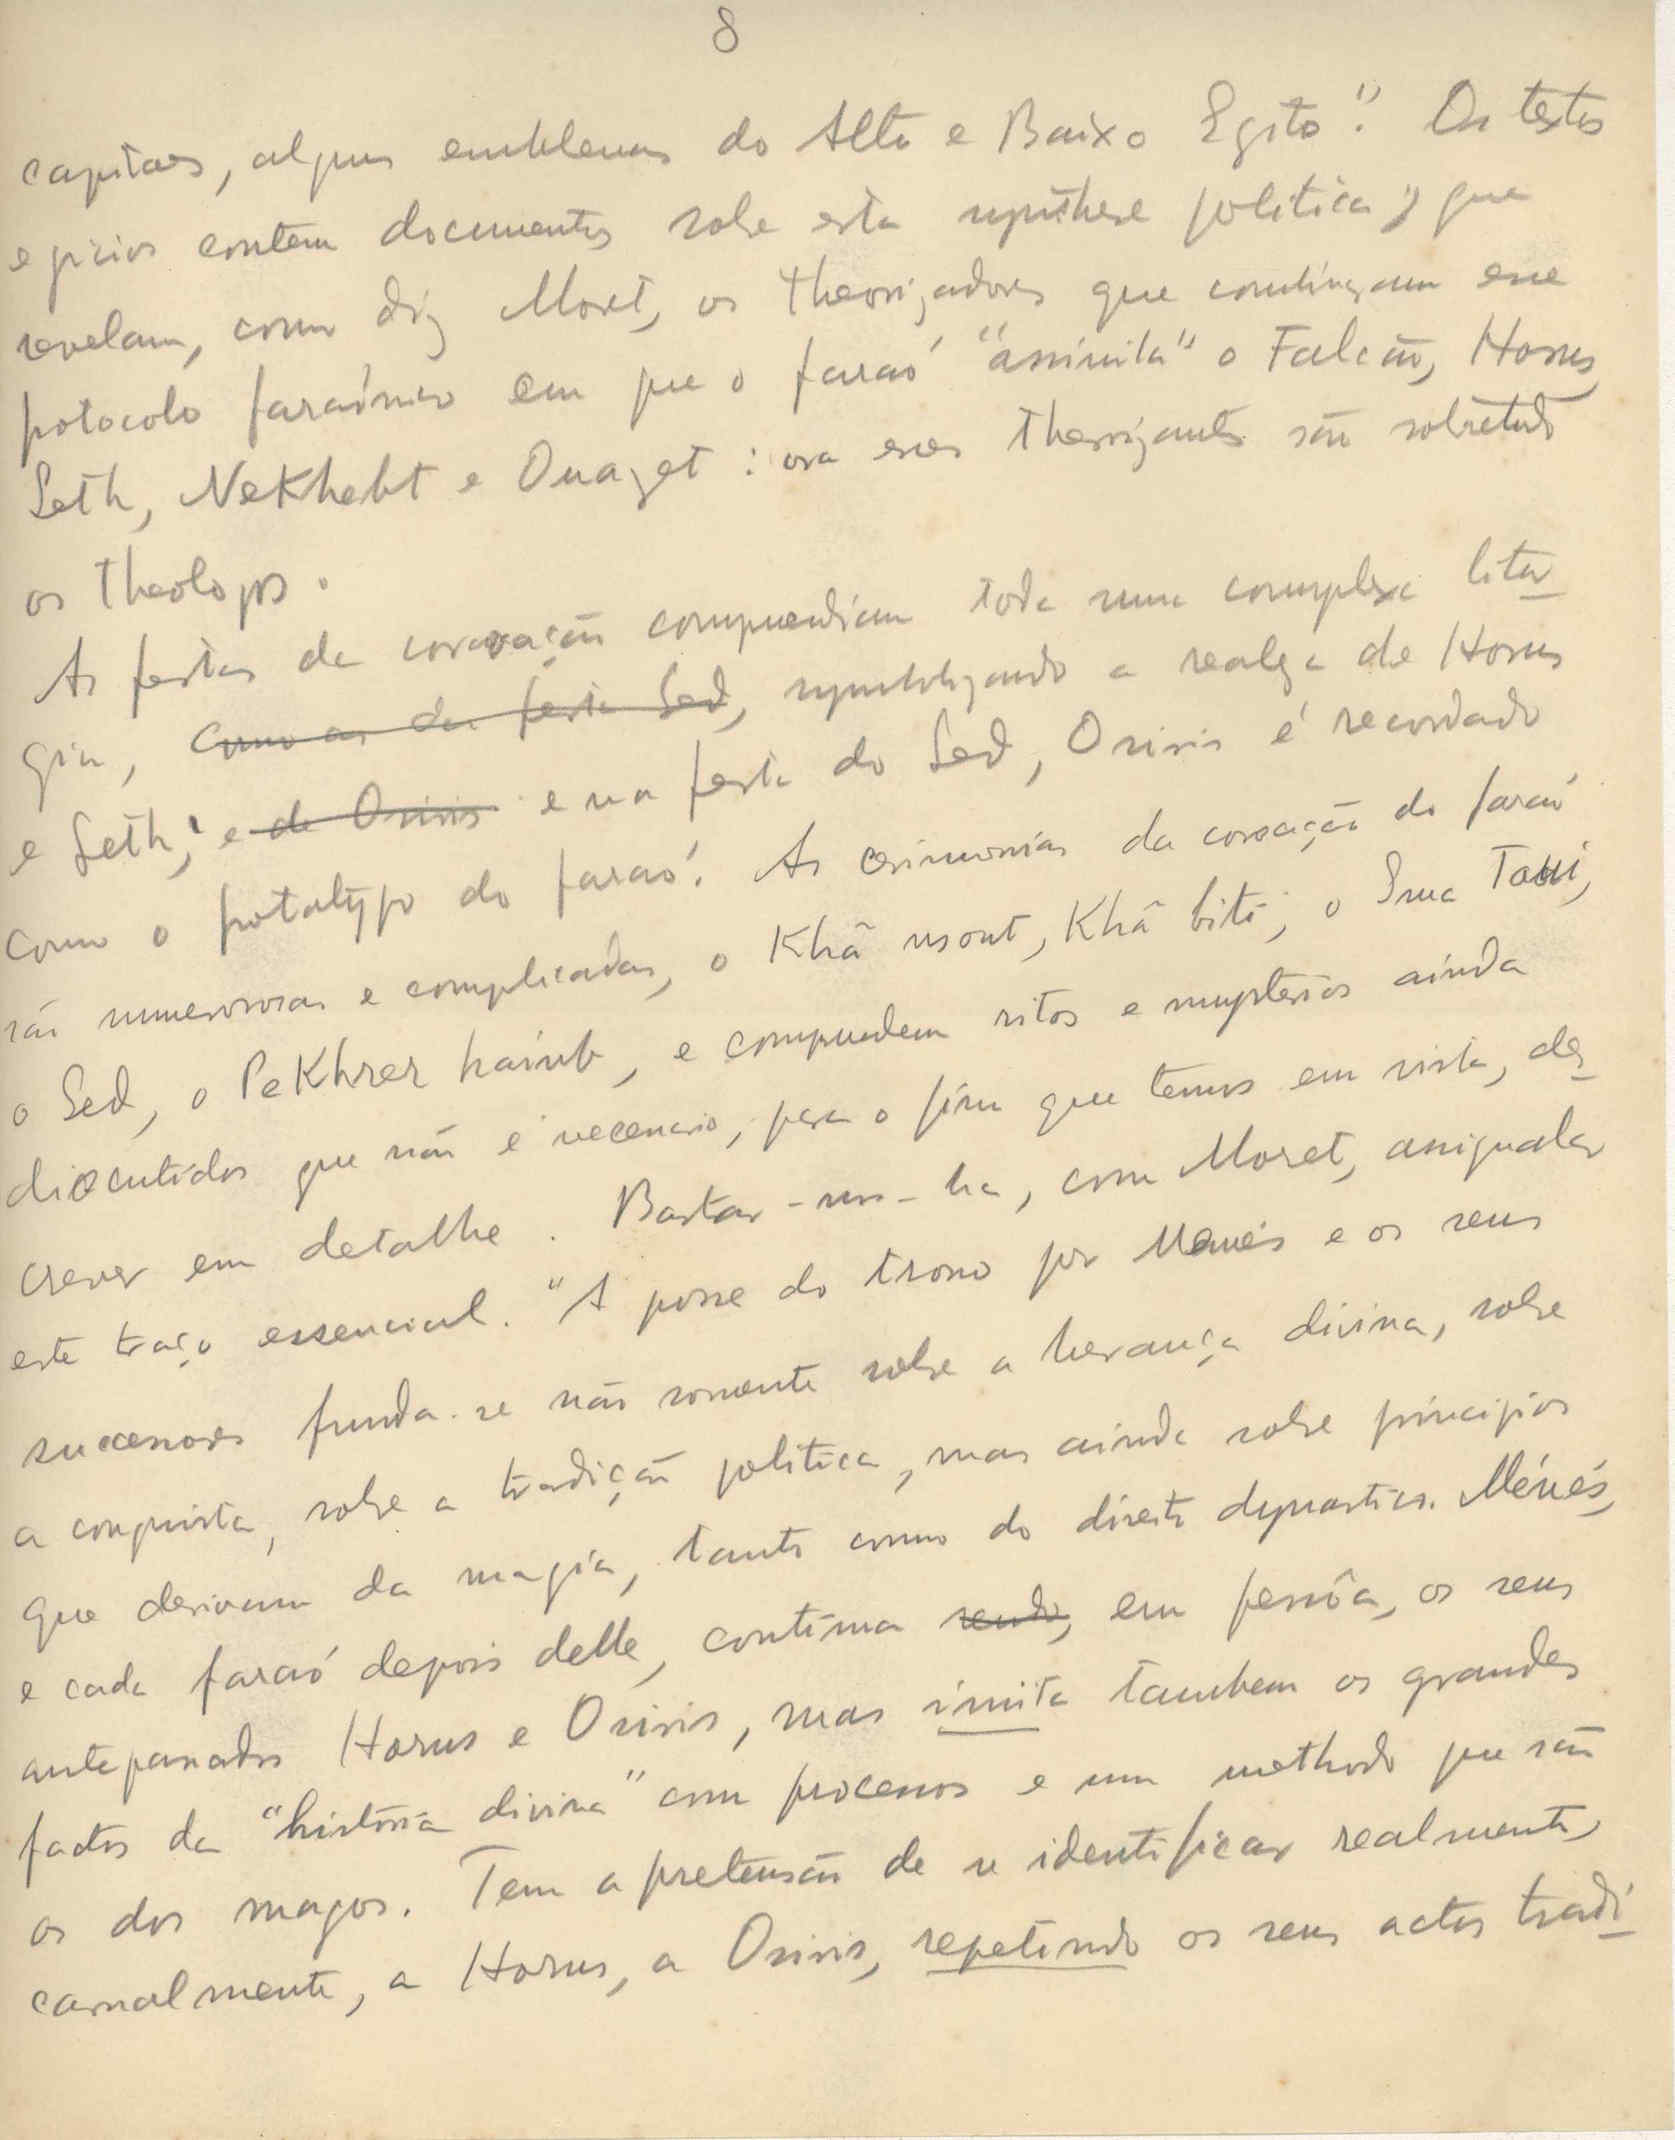 8
capitaes, alguns emblemas do Alto e Baixo Egito". Os textos
egipcios contêm documentos sobre esta synthese politica, que
revelam, como diz Moret, os theorizadores que combinaram esse
protocolo faraónico em que o faraó "assimila" o Falcão, Horus,
Seth, Nekhebt e Ouazet: ora esses theorizantes são sobretudo
os theologos.
As festas da coroação comprendiam toda uma complexa litur
gia, como as da festa Sed, symbolizando a realeza de Horus
e Seth; e de Osiris e na festa do Sed, Osiris é recordado
como o prototypo do faraó. As cerimonias da coroação do faraó
são numerosas e complicadas, o Khâ nsout, Khâ biti, o Sma Taui,
o Sed, o Pekhrer haint, e comprendem ritos e mysterios ainda
discutidos que não é necessario, para o fim que temos em vista, des
crever em detalhe. Bastar-nos-ha, com Moret, assignalar
este traço essencial. "A posse do trono por Menés e os seus
successores funda-se não somente sobre a herança divina, sobre
a conquista, sobre a tradição politica, mas ainda sobre principios
que derivam da magia, tanto como do direito dynastico. Ménés,
e cada faraó depois delle, continua sendo, em pessôa, os seus
antepassados Horus e Osiris, mas imita tambem os grandes
factos da "história divina" com processos e um methodo que são
os dos magos. Tem a pretensão de se identificar realmente,
carnalmente, a Horus, a Osiris, repetindo os seus actos tradi